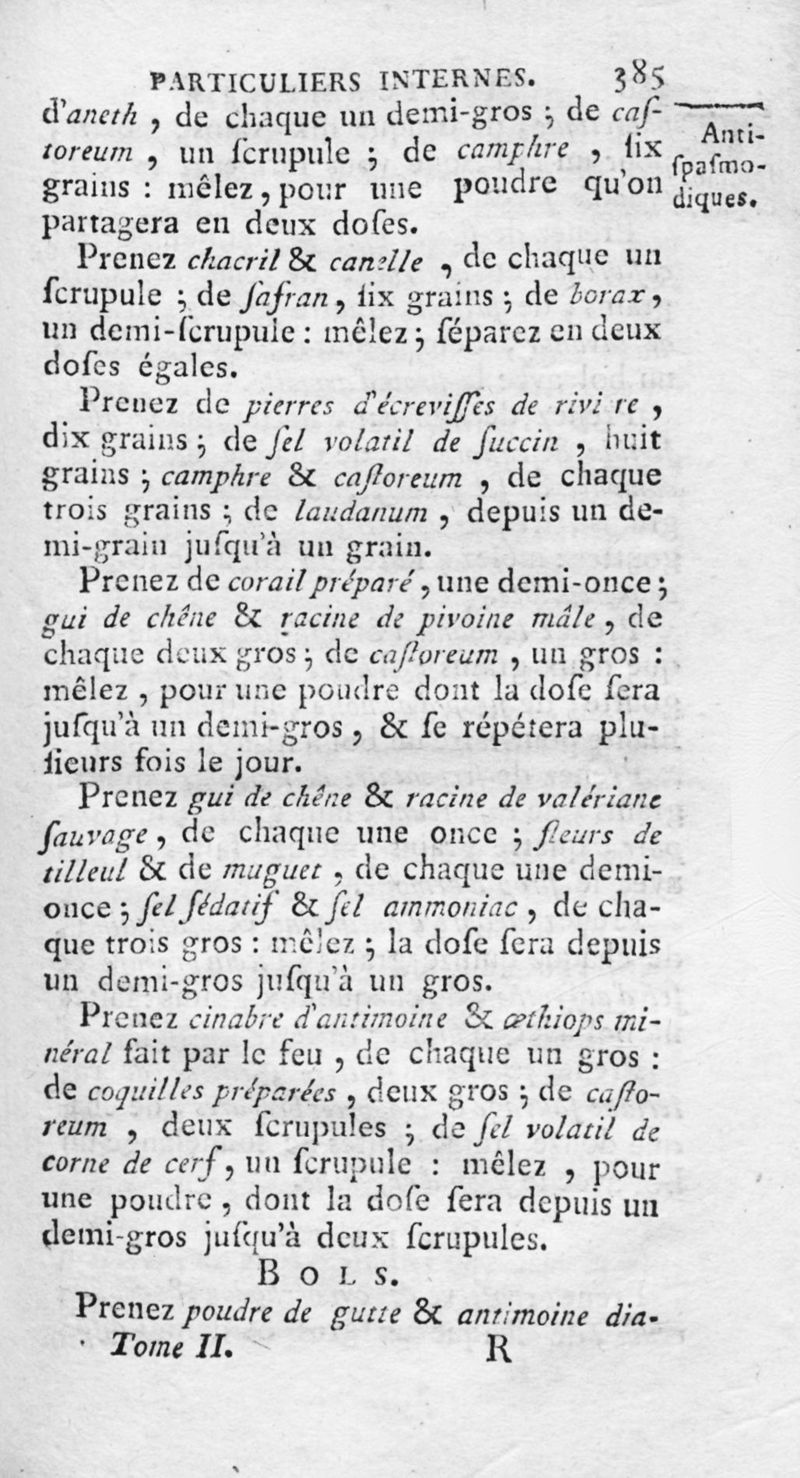 PARTICULIERS INTERNES. 385
d'aneth , de chaque un demi-gros ; de caſ-
toreum , un ſcrupule ; de camphre , ſix
grains : mêlez, pour une poudre qu'on
partagera en deux doſes.
Anti-
ſpaſmo-
diques.
Prenez chacril & canelle , de chaque un
ſcrupule ; de ſafran, ſix grains ; de borax,
un demi-ſcrupule : mêlez ; ſéparez en deux
doſes égales.
Prenez de pierres d'écreviſſes de rivi re ,
dix grains ; de ſel volatil de ſuccin , huit
grains ; camphre & caſtoreum , de chaque
trois grains ; de laudanum , depuis un de-
mi-grain juſqu'à un grain.
Prenez de corail préparé, une demi-once ;
gui de chêne & racine de pivoine mâle , de
chaque deux gros ; de caſtoreum , un gros :
mêlez , pour une poudre dont la doſe ſera
juſqu'à un demi-gros, & ſe répétera plu-
ſieurs fois le jour.
Prenez gui de chêne & racine de valériane
ſauvage , de chaque une once ; fleurs de
tilleul & de muguet , de chaque une demi-
once ; ſel ſédatif & ſel ammoniac , de cha-
que trois gros : mêlez ; la doſe ſera depuis
un demi-gros juſqu'à un gros.
Prenez cinabre d'antimoine & œthiops mi-
néral fait par le feu , de chaque un gros :
de coquilles préparées , deux gros ; de caſto-
reum , deux ſcrupules ; de ſel volatil de
corne de cerf, un ſcrupule : mêlez , pour
une poudre , dont la doſe ſera depuis un
demi-gros juſqu'à deux ſcrupules.
BOLS.
Prenez poudre de gutte & antimoine dia-
Tome II. R